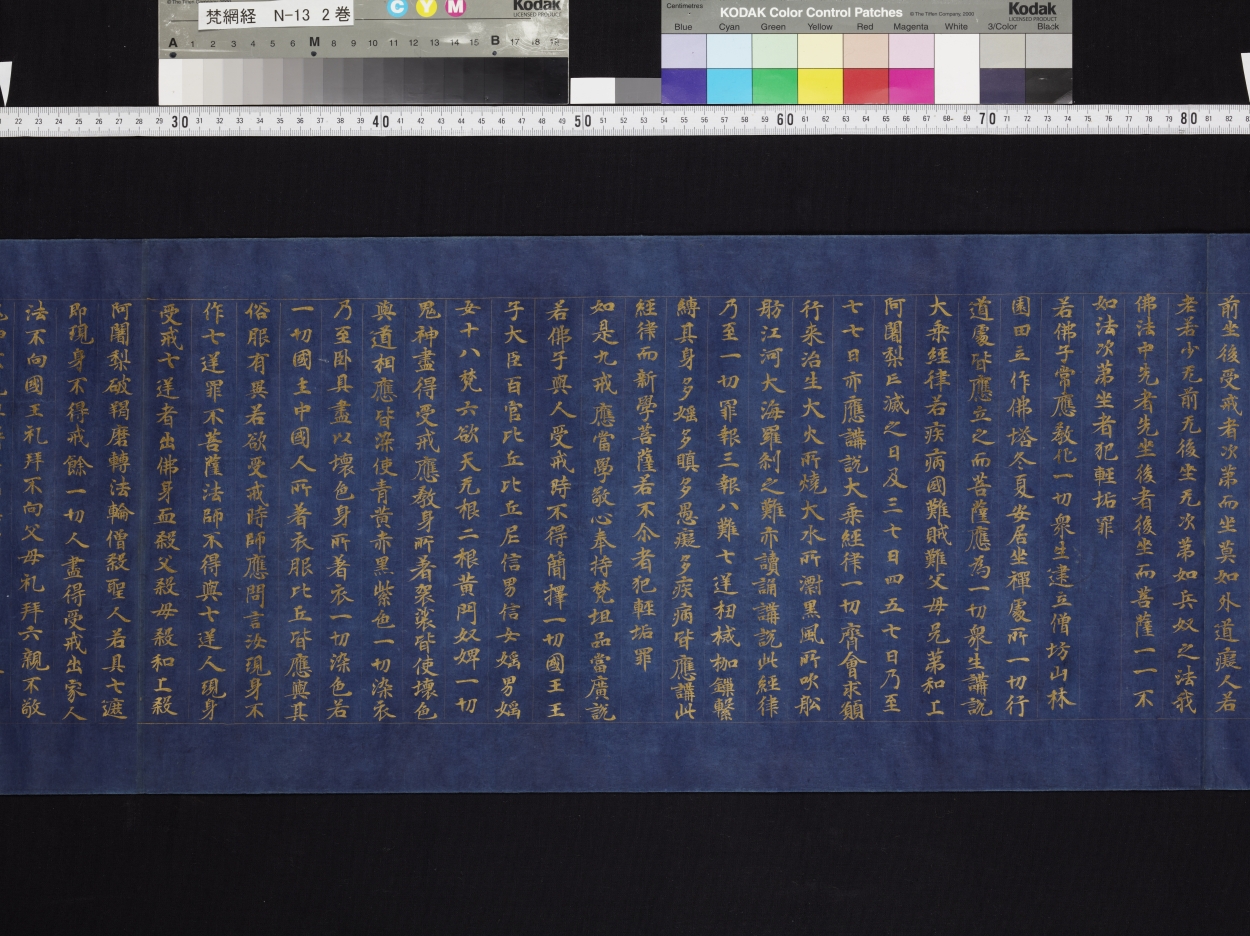 梵網経 N-13 2巻
C Y M
Kodak
LICENSED PRODUCT
A 1 2 3 4 5 6 M 8 9 10 11 12 13 14 15 B 17 18 19
Centimetres
KODAK Color Control Patches
© The Tiffen Company, 2000
Kodak
LICENSED PRODUCT
Blue Cyan Green Yellow Red Magenta White 3/Color Black
22 23 24 25 26 27 28 29 30 31 32 33 34 35 36 37 38 39 40 41 42 43 44 45 46 47 48 49 50 51 52 53 54 55 56 57 58 59 60 61 62 63 64 65 66 67 68 69 70 71 72 73 74 75 76 77 78 79 80 81 82
前坐後受戒者次第而坐莫如外道癡人若
老若少无前无後坐无次第如兵奴之法我
佛法中先者先坐後者後坐而菩薩一一不
如法次第坐者犯輕垢罪
若佛子常應教化一切衆生建立僧坊山林
園田立作佛塔冬夏安居坐禪處所一切行
道處皆應立之而菩薩應為一切衆生講說
大乘經律若疾病國難賊難父母兄弟和上
阿闍梨亡滅之日及三七日四五七日乃至
七七日亦應講說大乘經律一切齊會求願
行来治生大火所燒大水所漂黑風所吹舩
舫江河大海羅刹之難亦讀誦講說此經律
乃至一切罪報三報八難七逆杻械枷鏁繫
縛其身多婬多瞋多愚癡多疾病皆應講此
經律而新學菩薩若不尒者犯輕垢罪
如是九戒應當學敬心奉持梵坦品當廣說
若佛子與人受戒時不得簡擇一切國王王
子大臣百官比丘比丘尼信男信女婬男婬
女十八梵六欲天无根二根黄門奴婢一切
鬼神盡得受戒應教身所著袈裟皆使壞色
與道相應皆染使青黄赤黑紫色一切染衣
乃至卧具盡以壞色身所著衣一切染色若
一切國土中國人所著衣服比丘皆應與其
俗服有異若欲受戒時師應問言汝現身不
作七逆罪不菩薩法師不得與七逆人現身
受戒七逆者出佛身血殺父殺母殺和上殺
阿闍梨破羯磨轉法輪僧殺聖人若具七遮
即現身不得戒餘一切人盡得受戒出家人
法不向國王礼拜不向父母礼拜六親不敬